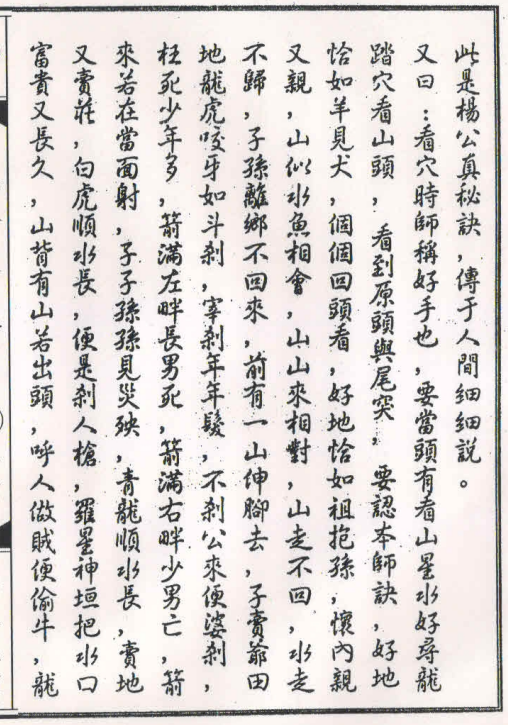 此是楊公真秘訣,傳于人間細細說。
又曰:看穴時師稱好手也,要當頭有看山星水好尋龍
踏穴看山頭,看到原頭與尾突,要認本師訣,好地
恰如羊見犬,個個回頭看,好地恰如祖抱孫,懷內親
又親,山似水魚相會,山山來相對,山走不回,水走
不歸,子孫離鄉不回來,前有一山伸腳去,子賣爺田
地龍虎咬牙如斗剎,宰剎年年髮,不剎公來便婆剎,
枉死少年多,箭滿左畔長男死,箭滿右畔少男亡,箭
來若在當面射,子子孫孫見災殃,青龍順水長,賣地
又賣莊,白虎順水長,便是剎人槍,羅星神垣把水口
富貴又長久,山背有山若出頭,呼人做賊便偷牛,龍